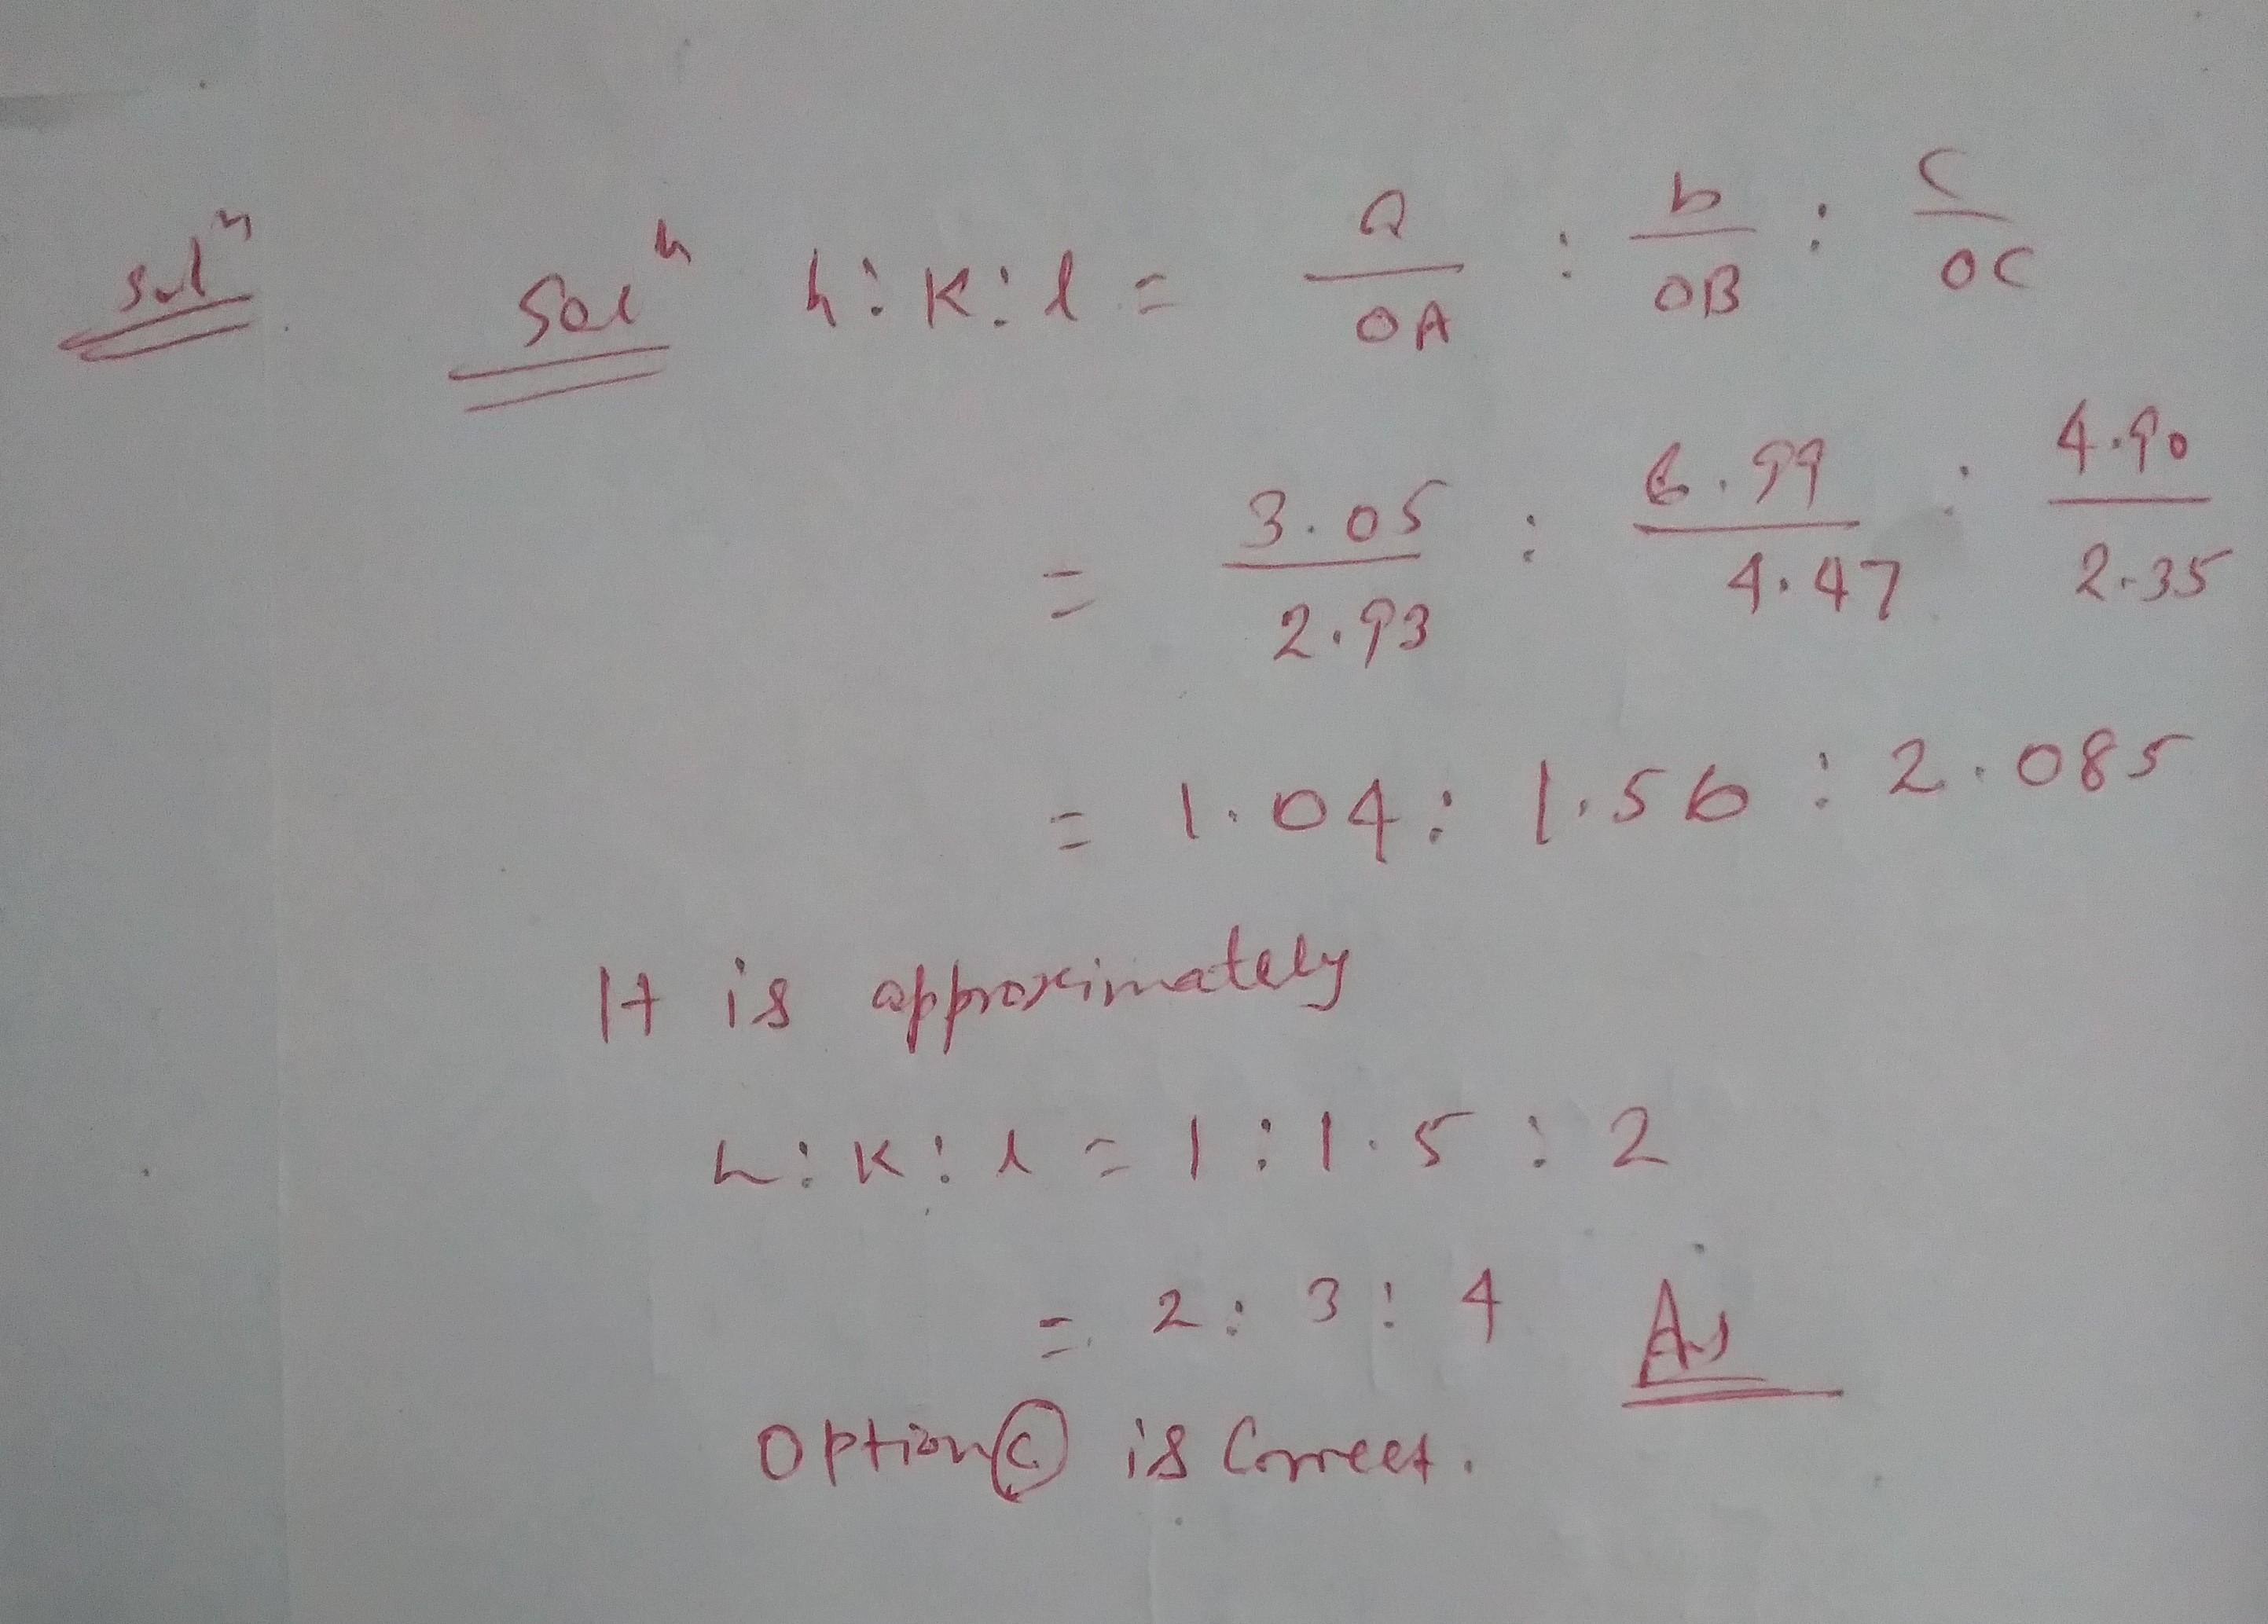 solⁿ. Solⁿ h:k:l = a/OA : b/OB : c/OC
= 3.05/2.93 : 6.99/4.47 : 4.90/2.35
= 1.04 : 1.56 : 2.085
It is approximately
h:k:l = 1 : 1.5 : 2
= 2 : 3 : 4 Ans
Option (C) is Correct.